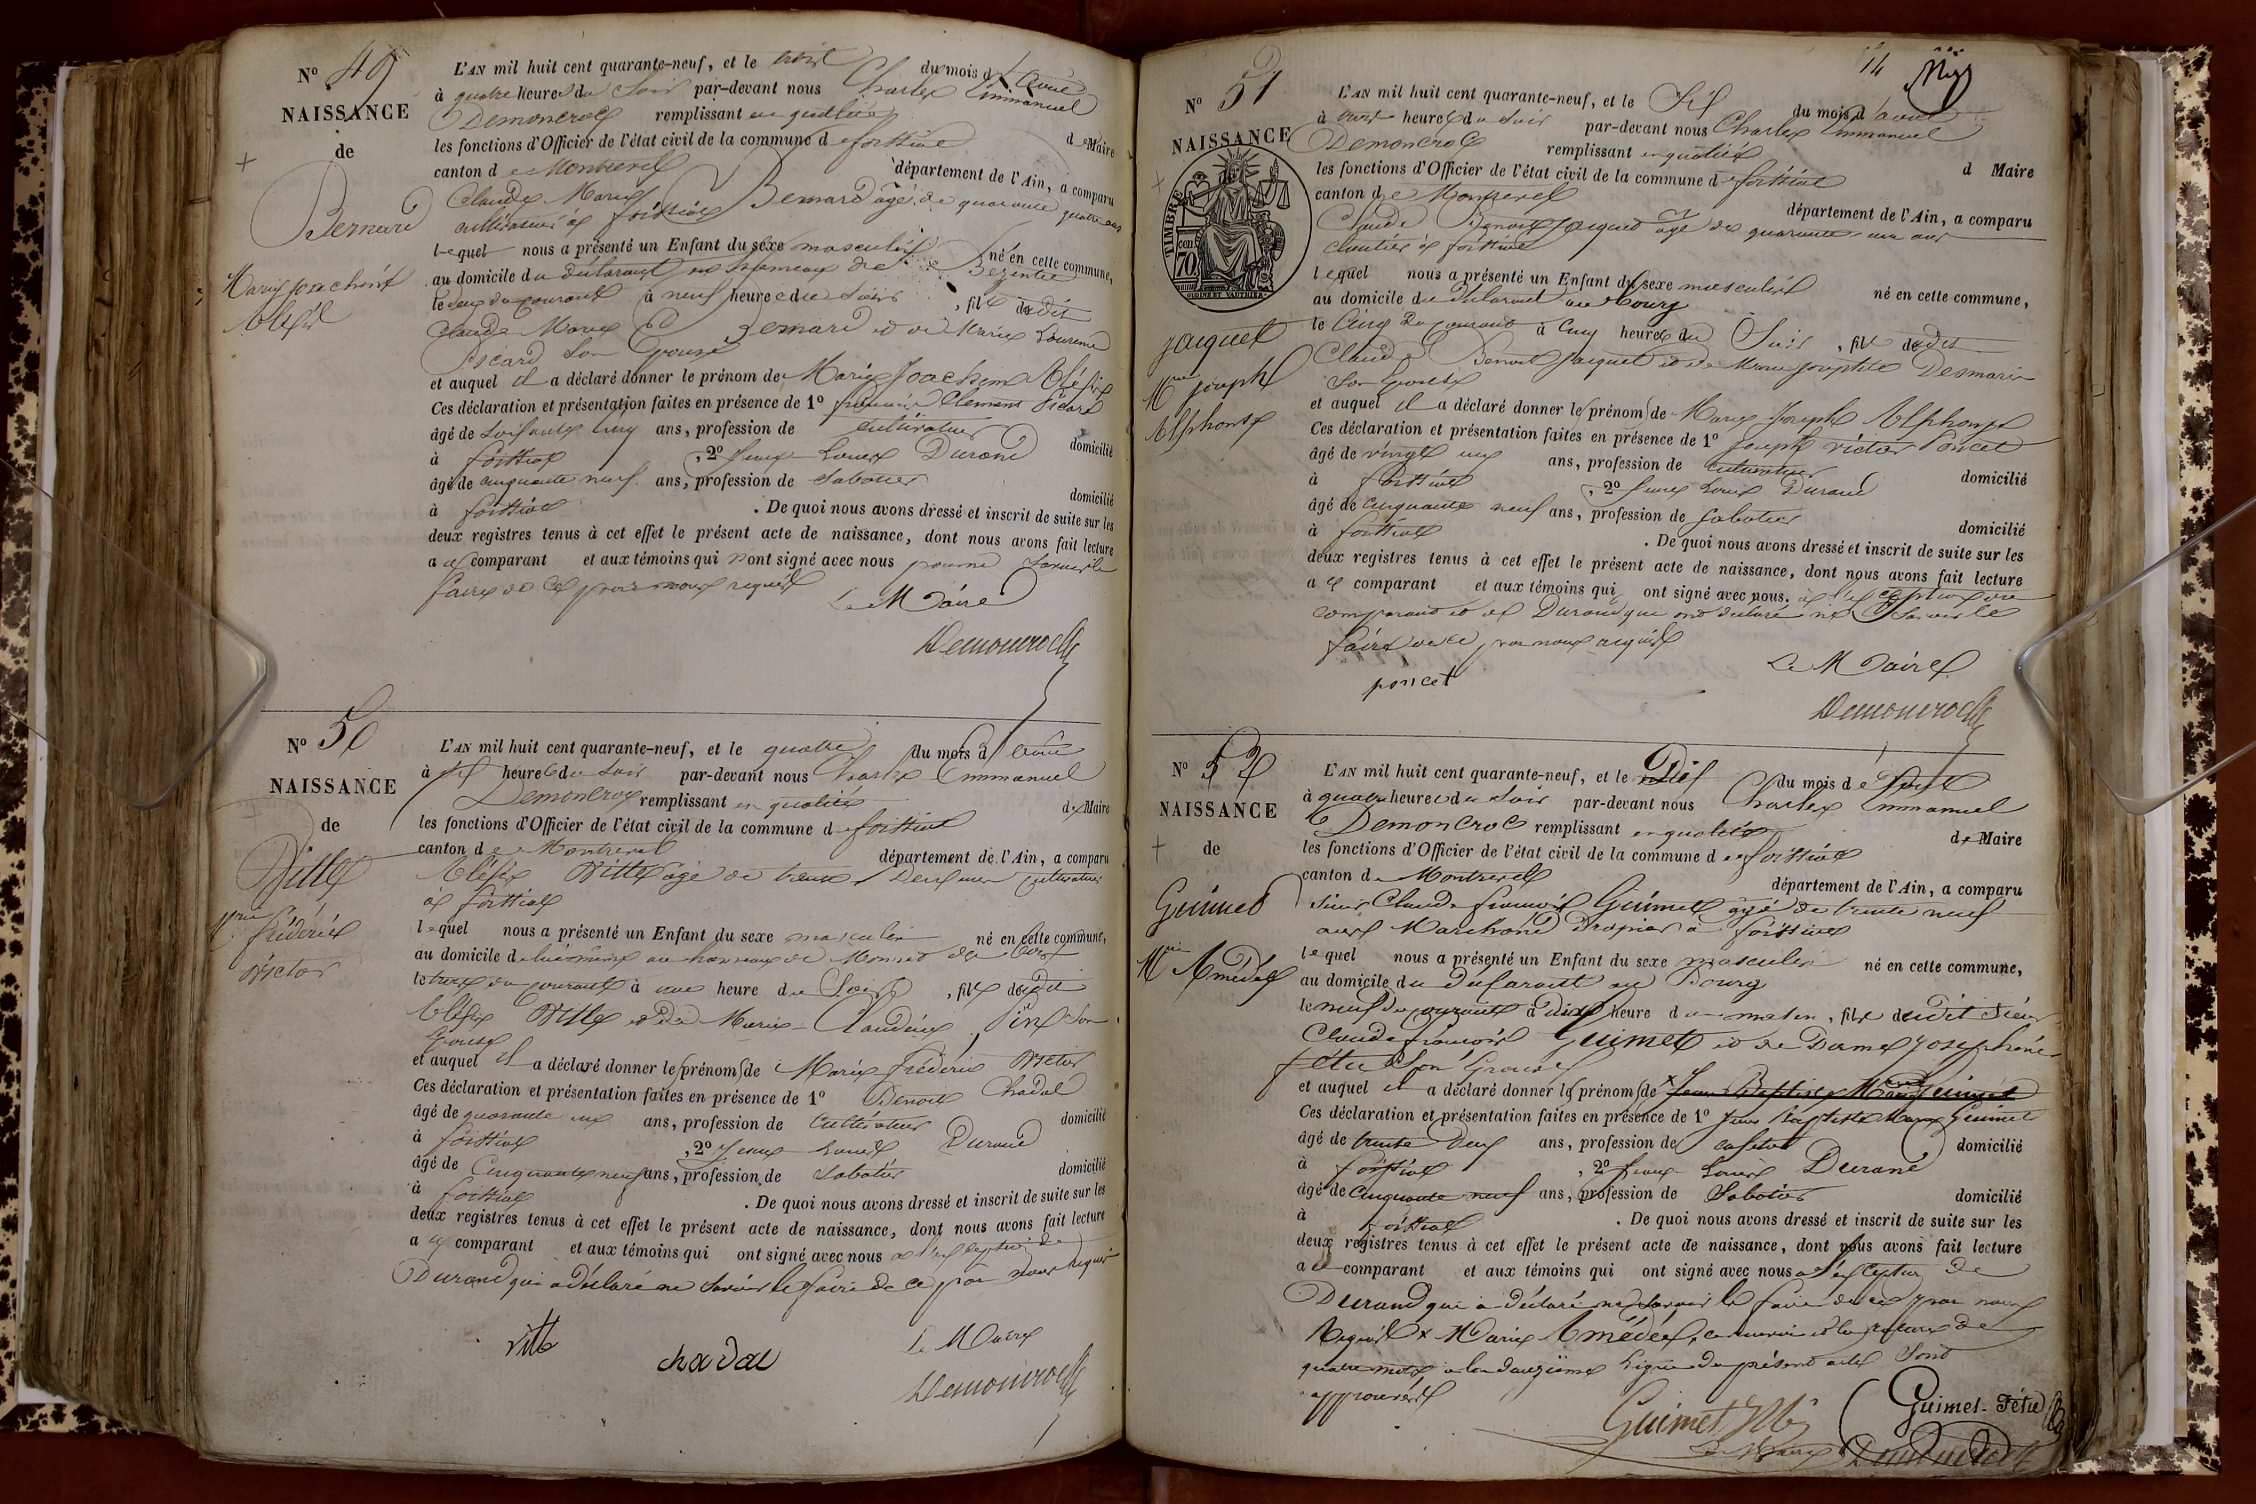 N° 49
NAISSANCE
de
Bernard
Marie Joachim
Aléxis
L'AN mil huit cent quarante-neuf, et le trois du mois d'Aout
à quatre heures du Soir par-devant nous Charles Emmanuel
Demoncroc remplissant en qualité de Maire
les fonctions d'Officier de l'état civil de la commune de foissiat
canton de Montrevel département de l'Ain, a comparu
Claude Marie Bernard âgé de quarante quatre ans
cultivateur à foissiat
lequel nous a présenté un Enfant du sexe masculin né en cette commune,
au domicile du déclarant au hameau de
le deux du courant à neuf heures du Soir, fils dudit
Claude Marie Bernard et de Marie
Picard Son Epouse
et auquel il a déclaré donner le prénom de Marie Joachim Aléxis
Ces déclaration et présentation faites en présence de 1° Clement Picard
âgé de Soixante cinq ans, profession de cultivateur domicilié
à foissiat, 2° Jean Louis Durand
âgé de cinquante neuf ans, profession de Sabotier domicilié
à foissiat. De quoi nous avons dressé et inscrit de suite sur les
deux registres tenus à cet effet le présent acte de naissance, dont nous avons fait lecture
a ce comparant et aux témoins qui n'ont signé avec nous pour ne Savoir le
faire de ce par nous requis
Le Maire
Demoncroc
N° 50
NAISSANCE
de
Vitte
Mie fréderic
Victor
L'AN mil huit cent quarante-neuf, et le quatre du mois d'Aout
à heures du Soir par-devant nous Charles Emmanuel
Demoncroc remplissant en qualité de Maire
les fonctions d'Officier de l'état civil de la commune de foissiat
canton de Montrevel département de l'Ain, a comparu
Aléxis Vitte âgé de trente Deux ans cultivateur
à foissiat
lequel nous a présenté un Enfant du sexe masculin né en cette commune,
au domicile de lui même au hameau de
le trois du courant à une heure du Soir, fils dudit
Aléxis Vitte et de Marie Claudine Pin Son
Epouse
et auquel il a déclaré donner le prénom de Marie fréderic Victor
Ces déclaration et présentation faites en présence de 1° Benoit Chadal
âgé de quarante un ans, profession de Cultivateur domicilié
à foissiat, 2° Jean Louis Durand
âgé de Cinquante neuf ans, profession de Sabotier domicilié
à foissiat. De quoi nous avons dressé et inscrit de suite sur les
deux registres tenus à cet effet le présent acte de naissance, dont nous avons fait lecture
a ce comparant et aux témoins qui ont signé avec nous à l'exception de
Durand qui a déclaré ne Savoir le faire de ce par nous requis
Vitte
chadal
Le Maire
Demoncroc
14
N° 51
NAISSANCE
TIMBRE
70 cen
jacquet
Mie joseph
Alphonse
L'AN mil huit cent quarante-neuf, et le Six du mois d'aout
à heures du Soir par-devant nous Charles Emmanuel
Demoncroc remplissant en qualité d Maire
les fonctions d'Officier de l'état civil de la commune de foissiat
canton de Montrevel département de l'Ain, a comparu
Claude Benoit jacquet âgé de quarante un ans
cloutier à foissiat
lequel nous a présenté un Enfant du sexe masculin né en cette commune,
au domicile du déclarant au Bourg
le Cinq du courant à Cinq heures du Soir, fils dudit
Claude Benoit jacquet et de Marie josephte Desmaris
Son Epouse
et auquel il a déclaré donner le prénom de Marie Joseph Alphonse
Ces déclaration et présentation faites en présence de 1° Joseph victor Poncet
âgé de vingt un ans, profession de cultivateur domicilié
à foissiat, 2° Jean Louis Durand
âgé de cinquante neuf ans, profession de Sabotier domicilié
à foissiat. De quoi nous avons dressé et inscrit de suite sur les
deux registres tenus à cet effet le présent acte de naissance, dont nous avons fait lecture
a ce comparant et aux témoins qui ont signé avec nous. à l'exception du
comparant et de Durand qui ont déclaré ne Savoir le
faire de ce par nous requis
poncet
Le Maire
Demoncroc
N° 52
NAISSANCE
de
Guimet
Mie Amédée
L'AN mil huit cent quarante-neuf, et le Dix du mois de Aout
à quatre heures du Soir par-devant nous Charles Emmanuel
Demoncroc remplissant en qualité de Maire
les fonctions d'Officier de l'état civil de la commune de foissiat
canton de Montrevel département de l'Ain, a comparu
Sieur Claude françois Guimet âgé de trente neuf
ans Marchand Drapier à foissiat
lequel nous a présenté un Enfant du sexe masculin né en cette commune,
au domicile du Déclarant au Bourg
le neuf du courant à dix heure du matin, fils dudit Sieur
Claude françois Guimet et de Dame Josephine
fétu Son Epouse
et auquel il a déclaré donner le prénom de Jean Baptiste Marie Guimet
Ces déclaration et présentation faites en présence de 1° Jean Baptiste Marie Guimet
âgé de trente Deux ans, profession de domicilié
à foissiat, 2° Jean Louis Durand
âgé de cinquante neuf ans, profession de Sabotier domicilié
à foissiat. De quoi nous avons dressé et inscrit de suite sur les
deux registres tenus à cet effet le présent acte de naissance, dont nous avons fait lecture
a ce comparant et aux témoins qui ont signé avec nous à l'exception de
Durand qui a déclaré ne Savoir le faire de ce par nous
Requis x Marie Amédée, ce renvoi et la rature de
quatre mots à la douzième Ligne du présent acte Sont
approuvés
Guimet
Guimet-Fétu
Le Maire Demoncroc